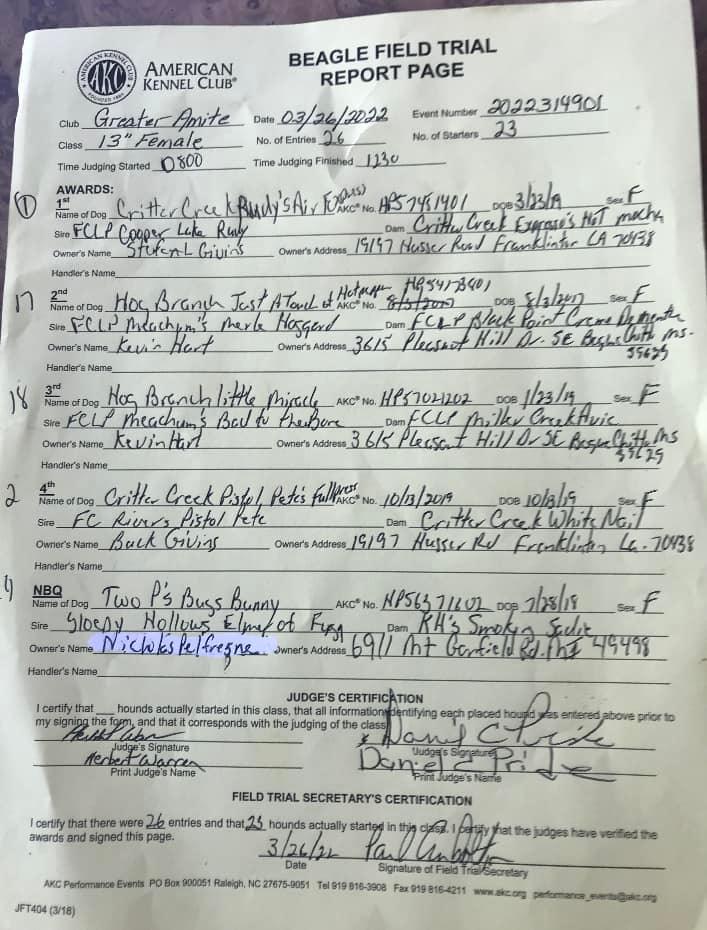 AMERICAN KENNEL CLUB
FOUNDED 1884
AKC
AMERICAN
KENNEL CLUB®
BEAGLE FIELD TRIAL
REPORT PAGE
Club Greater Amite Date 03/26/2022 Event Number 2022314901
Class 13" Female No. of Entries 26 No. of Starters 23
Time Judging Started 0800 Time Judging Finished 1230
AWARDS:
1 1st
Name of Dog Critter Creek Rudy's Air AKC® No. HP57451401 DOB 3/23/19 Sex F
Sire FCLP Cooper Lake Rudy Dam Critter Creek Express's Hot mocha
Owner's Name Givins Owner's Address 19197 Husser Road Franklinton LA 70438
Handler's Name
17 2nd
Name of Dog Hog Branch Just A Touch of AKC® No. DOB 8/3/2017 Sex F
Sire FCLP Meachum's Merle Haggard Dam FCLP Black Point Creme
Owner's Name Kevin Hart Owner's Address 3615 Pleasant Hill Dr. SE Bogue Chitto Ms.
Handler's Name
18 3rd
Name of Dog Hog Branch little Miracle AKC® No. HP57021202 DOB 1/23/19 Sex F
Sire FCLP Meachum's Bad to the Bone Dam FCLP Milky Creek
Owner's Name Kevin Hart Owner's Address 3615 Pleasant Hill Dr SE Bogue Chitto Ms
39629
Handler's Name
2 4th
Name of Dog Critter Creek Pistol Pete's AKC® No. 10/13/2019 DOB 10/8/19 Sex F
Sire FC River's Pistol Pete Dam Critter Creek White Nail
Owner's Name Buck Givins Owner's Address 19197 Husser Rd Franklinton La. 70438
Handler's Name
NBQ
Name of Dog Two P's Bugs Bunny AKC® No. HP56371602 DOB 7/28/18 Sex F
Sire Sleepy Hollows Elmer of Dam RH's Smokin
Owner's Name Nicholas Pelfresne Owner's Address 6911 Mt Garfield Rd. MI 49498
Handler's Name
JUDGE'S CERTIFICATION
I certify that ___ hounds actually started in this class, that all information identifying each placed hound was entered above prior to
my signing the form, and that it corresponds with the judging of the class.
Judge's Signature Judge's Signature
Herbert Warren Daniel C Pride
Print Judge's Name Print Judge's Name
FIELD TRIAL SECRETARY'S CERTIFICATION
I certify that there were 26 entries and that 23 hounds actually started in this class. I certify that the judges have verified the
awards and signed this page.
3/26/22
Date Signature of Field Trial Secretary
AKC Performance Events PO Box 900051 Raleigh, NC 27675-9051 Tel 919 816-3908 Fax 919 816-4211 www.akc.org performance_events@akc.org
JFT404 (3/18)